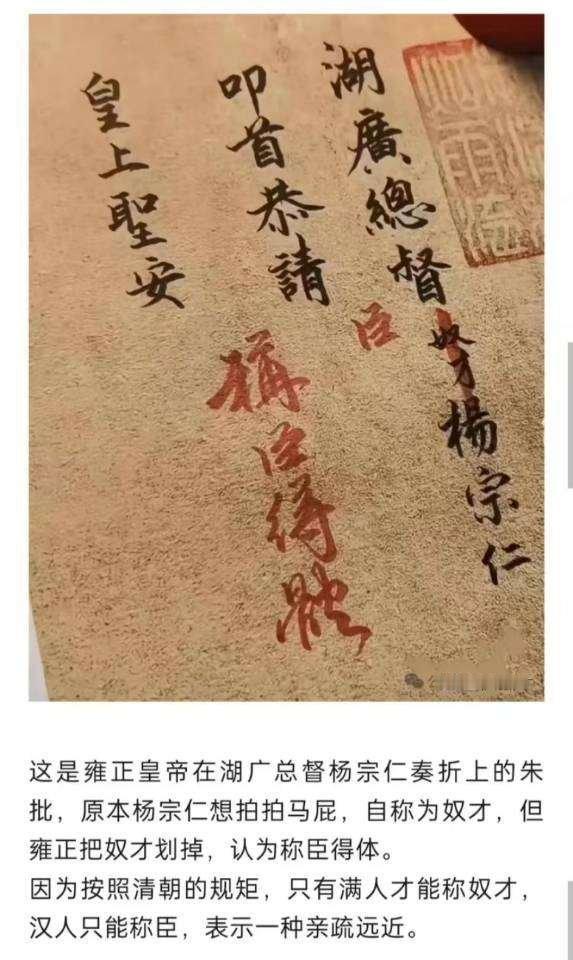 湖廣總督奴才楊宗仁
臣
叩首恭請
稱臣得體
皇上聖安
这是雍正皇帝在湖广总督杨宗仁奏折上的朱
批，原本杨宗仁想拍拍马屁，自称为奴才，但
雍正把奴才划掉，认为称臣得体。
因为按照清朝的规矩，只有满人才能称奴才，
汉人只能称臣，表示一种亲疏远近。